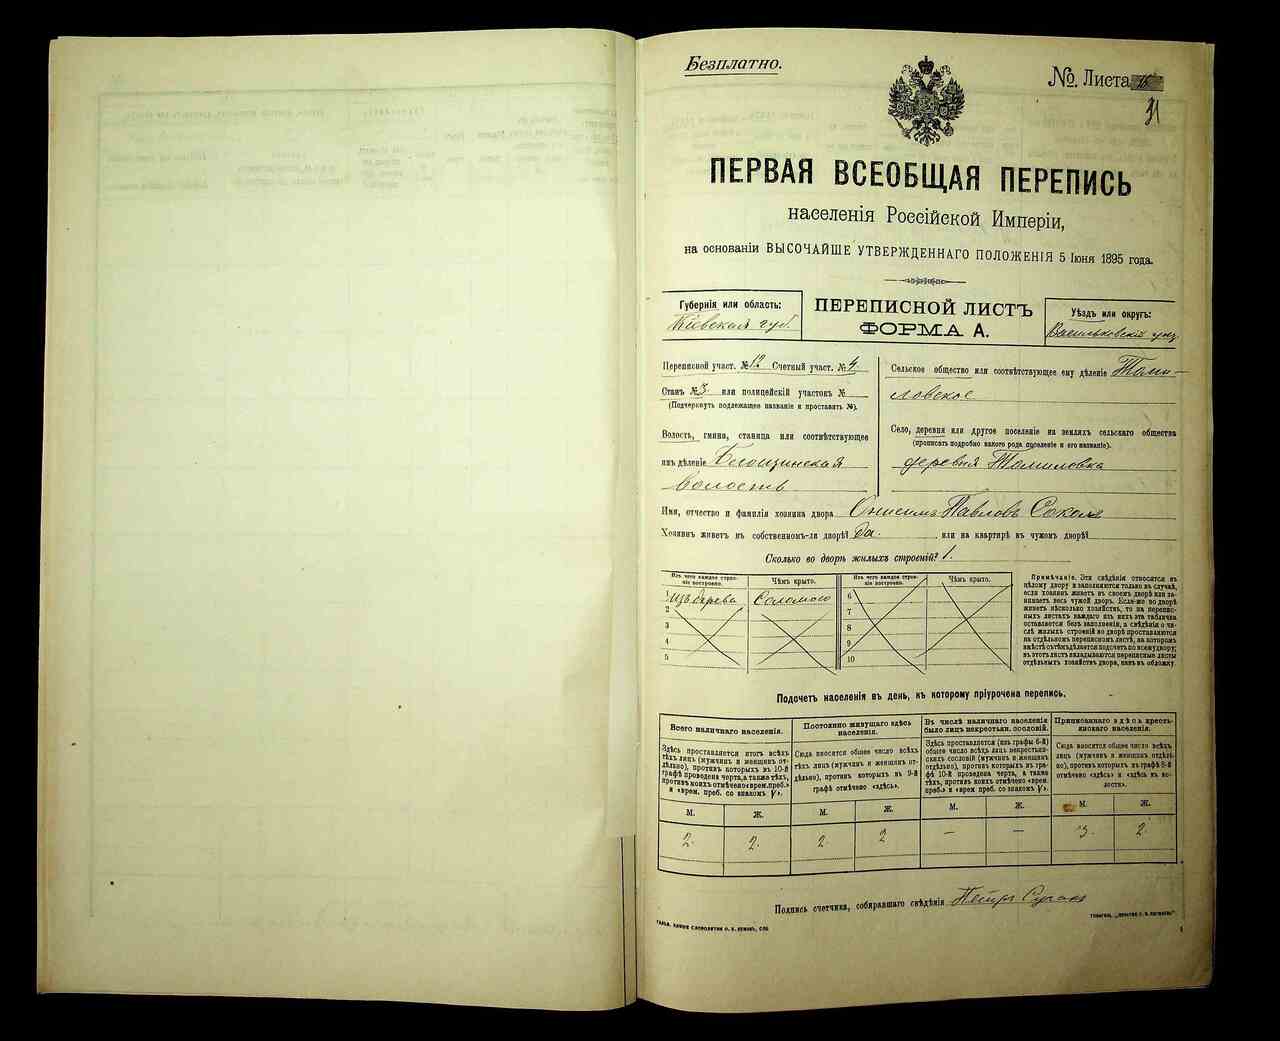 Безплатно.
№. Листа
31
ПЕРВАЯ ВСЕОБЩАЯ ПЕРЕПИСЬ
населенія Россійской Имперіи,
на основаніи ВЫСОЧАЙШЕ УТВЕРЖДЕННАГО ПОЛОЖЕНІЯ 5 Іюня 1895 года.
Губернія или область:
Кіевская губ.
ПЕРЕПИСНОЙ ЛИСТЪ
ФОРМА А.
Уѣздъ или округъ:
Васильковскій уѣз.
Переписной участ. № 12 Счетный участ. № 4.
Станъ № 3. или полицейскій участокъ №
(Подчеркнуть подлежащее названіе и проставить №).
Волость, гмина, станица или соотвѣтствующее
имъ дѣленіе
волость
Сельское общество или соотвѣтствующее ему дѣленіе Томи-
ловское
Село, деревня или другое поселеніе на земляхъ сельскаго общества
(прописать подробно какого рода поселеніе и его названіе).
деревня Томиловка
Имя, отчество и фамилія хозяина двора Онисимъ Павловъ Соколъ
Хозяинъ живетъ въ собственномъ-ли дворѣ? Да. или на квартирѣ въ чужомъ дворѣ?
Сколько во дворѣ жилыхъ строеній? 1.
Изъ чего каждое строе-
ніе построено.
Чѣмъ крыто.
Изъ чего каждое строе-
ніе построено.
Чѣмъ крыто.
1 Изъ дерева Соломою 6
2 7
3 8
4 9
5 10
Примѣчаніе. Эти свѣдѣнія относятся къ
цѣлому двору и заполняются только въ случаѣ,
если хозяинъ живетъ въ своемъ дворѣ или за-
нимаетъ весь чужой дворъ. Если-же во дворѣ
живетъ нѣсколько хозяйствъ, то на перепис-
ныхъ листахъ каждаго изъ нихъ эта табличка
оставляется безъ заполненія, а свѣдѣнія о чи-
слѣ жилыхъ строеній во дворѣ проставляются
на отдѣльномъ переписномъ листѣ, на которомъ
вмѣстѣ съ тѣмъ дѣлается подсчетъ по всему двору;
въ этотъ листъ вкладываются переписные листы
отдѣльныхъ хозяйствъ двора, какъ въ обложку.
Подсчетъ населенія въ день, къ которому пріурочена перепись.
Всего наличнаго населенія.
Здѣсь проставляется итогъ всѣхъ
тѣхъ лицъ (мужчинъ и женщинъ от-
дѣльно), противъ которыхъ въ 10-й
графѣ проведена черта, а также тѣхъ,
противъ коихъ отмѣчено «врем. преб.»
и «врем. преб. со знакомъ V».
Постоянно живущаго здѣсь
населенія.
Сюда вносится общее число всѣхъ
тѣхъ лицъ (мужчинъ и женщинъ от-
дѣльно), противъ которыхъ въ 9-й
графѣ отмѣчено «здѣсь».
Въ числѣ наличнаго населенія
было лицъ некрестьян. сословій.
Здѣсь проставляется (изъ графы 6-й)
общее число всѣхъ лицъ некрестьян-
скихъ сословій (мужчинъ и женщинъ
отдѣльно), противъ которыхъ въ гра-
фѣ 10-й проведена черта, а также
тѣхъ, противъ коихъ отмѣчено «врем.
преб.» и «врем. преб. со знакомъ V».
Приписаннаго здѣсь кресть-
янскаго населенія.
Сюда вносится общее число всѣхъ
лицъ (мужчинъ и женщинъ отдѣль-
но), противъ которыхъ въ графѣ 8-й
отмѣчено «здѣсь» и «здѣсь въ во-
лости».
М. Ж. М. Ж. М. Ж. М. Ж.
2. 2. 2. 2 — — 3. 2.
Подпись счетчика, собиравшаго свѣдѣнія Петръ
1